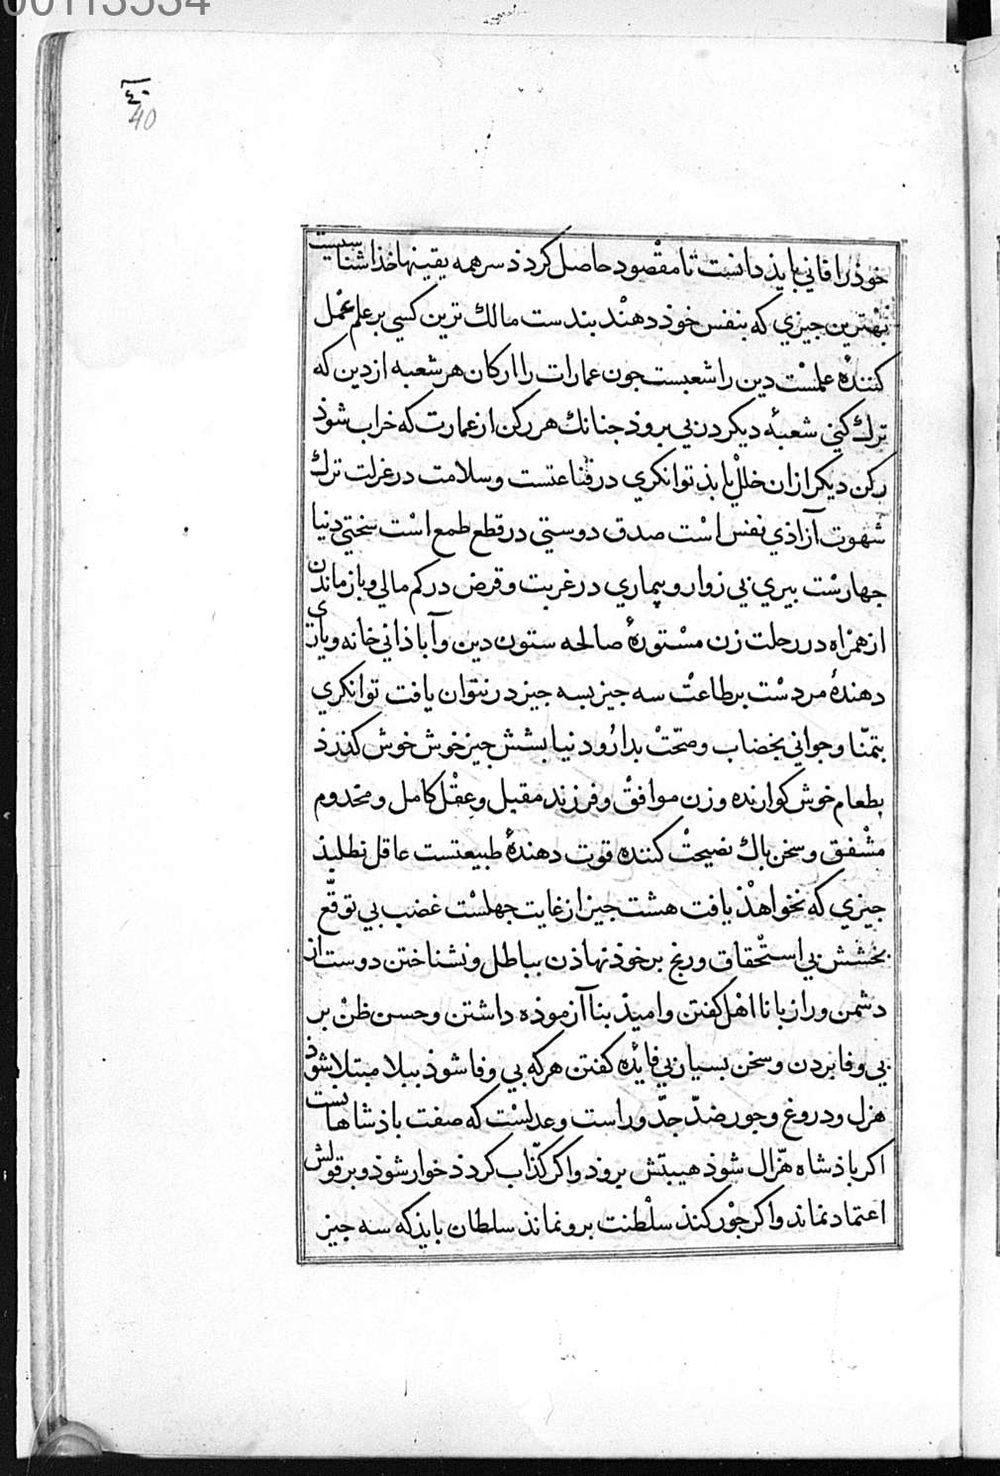 00113534
٤٠
40
خوذ را فاني بايذ دانست تا مقصود حاصل كردذ سر همه يقينها خذا شناسيست
بهترين جيزي كه بنفس خوذ دهند بندست مالك ترين كسي بر علم عمل
كننده علمست دين را شعبست جون عمارات را اركان هر شعبه از دين كه
ترك كني شعبۀ ديكر در بي بروذ جنانك هر ركن از عمارت كه خراب شوذ
ركن ديكر ازان خلل يابذ توانكري در قناعتست و سلامت در عزلت ترك
شهوت آزاذي نفس است صدق دوستي در قطع طمع است سختي دنيا
جهارست بيري بي زوار و بيماري در غربت و قرض در كم مالي و باز ماندن
از همراه در رحلت زن مستورۀ صالحه ستون دين و آباذاني خانه و ياري
دهندۀ مردست بر طاعت سه جيز بسه جيز در نتوان يافت توانكري
بتمنا و جواني بخضاب و صحّت بدارو دنيا بشش جيز خوش خوش كذرذ
بطعام خوش كوارنده و زن موافق و فرزند مقبل و عقل كامل و مخدوم
مشفق و سخن باك نصيحت كننده قوت دهندۀ طبيعتست عاقل نطلبذ
جيزي كه نخواهذ يافت هشت جيز از غايت جهلست غضب بي توقّع
بخشش بي استحقاق و رنج بر خوذ نهاذن بباطل و نشناختن دوست از
دشمن و راز با نا اهل كفتن و اميذ بنا آزموذه داشتن و حسن ظن بر
بي وفا بردن و سخن بسيار بي فايده كفتن هر كه بي وفا شوذ ببلا مبتلا شوذ
هزل و دروغ و جور ضدّ جدّ و راست و عدلست كه صفت باذشاهانست
اكر باذشاه هزّال شوذ هيبتش بروذ و اكر كذّاب كردذ خوار شوذ و بر قولش
اعتماد نماند و اكر جور كنذ سلطنت برو نماند سلطان بايذ كه سه جيز